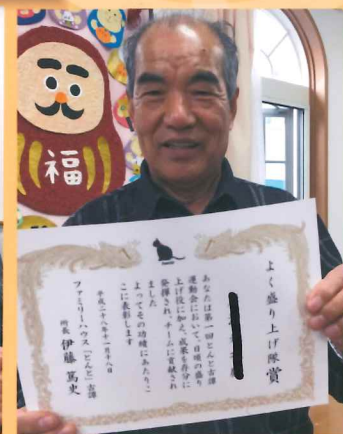 福
よく盛り上げ隊賞
あなたは第一回とんと古譚
運動会において、日頃の盛り
上げ役に加え、成果を存分に
発揮され、チームに貢献され
ました
よってその功績にあたりこ
こに表彰します
平成二十八年十一月十八日
ファミリーハウス「とんと」古譚
所長 伊藤篤史